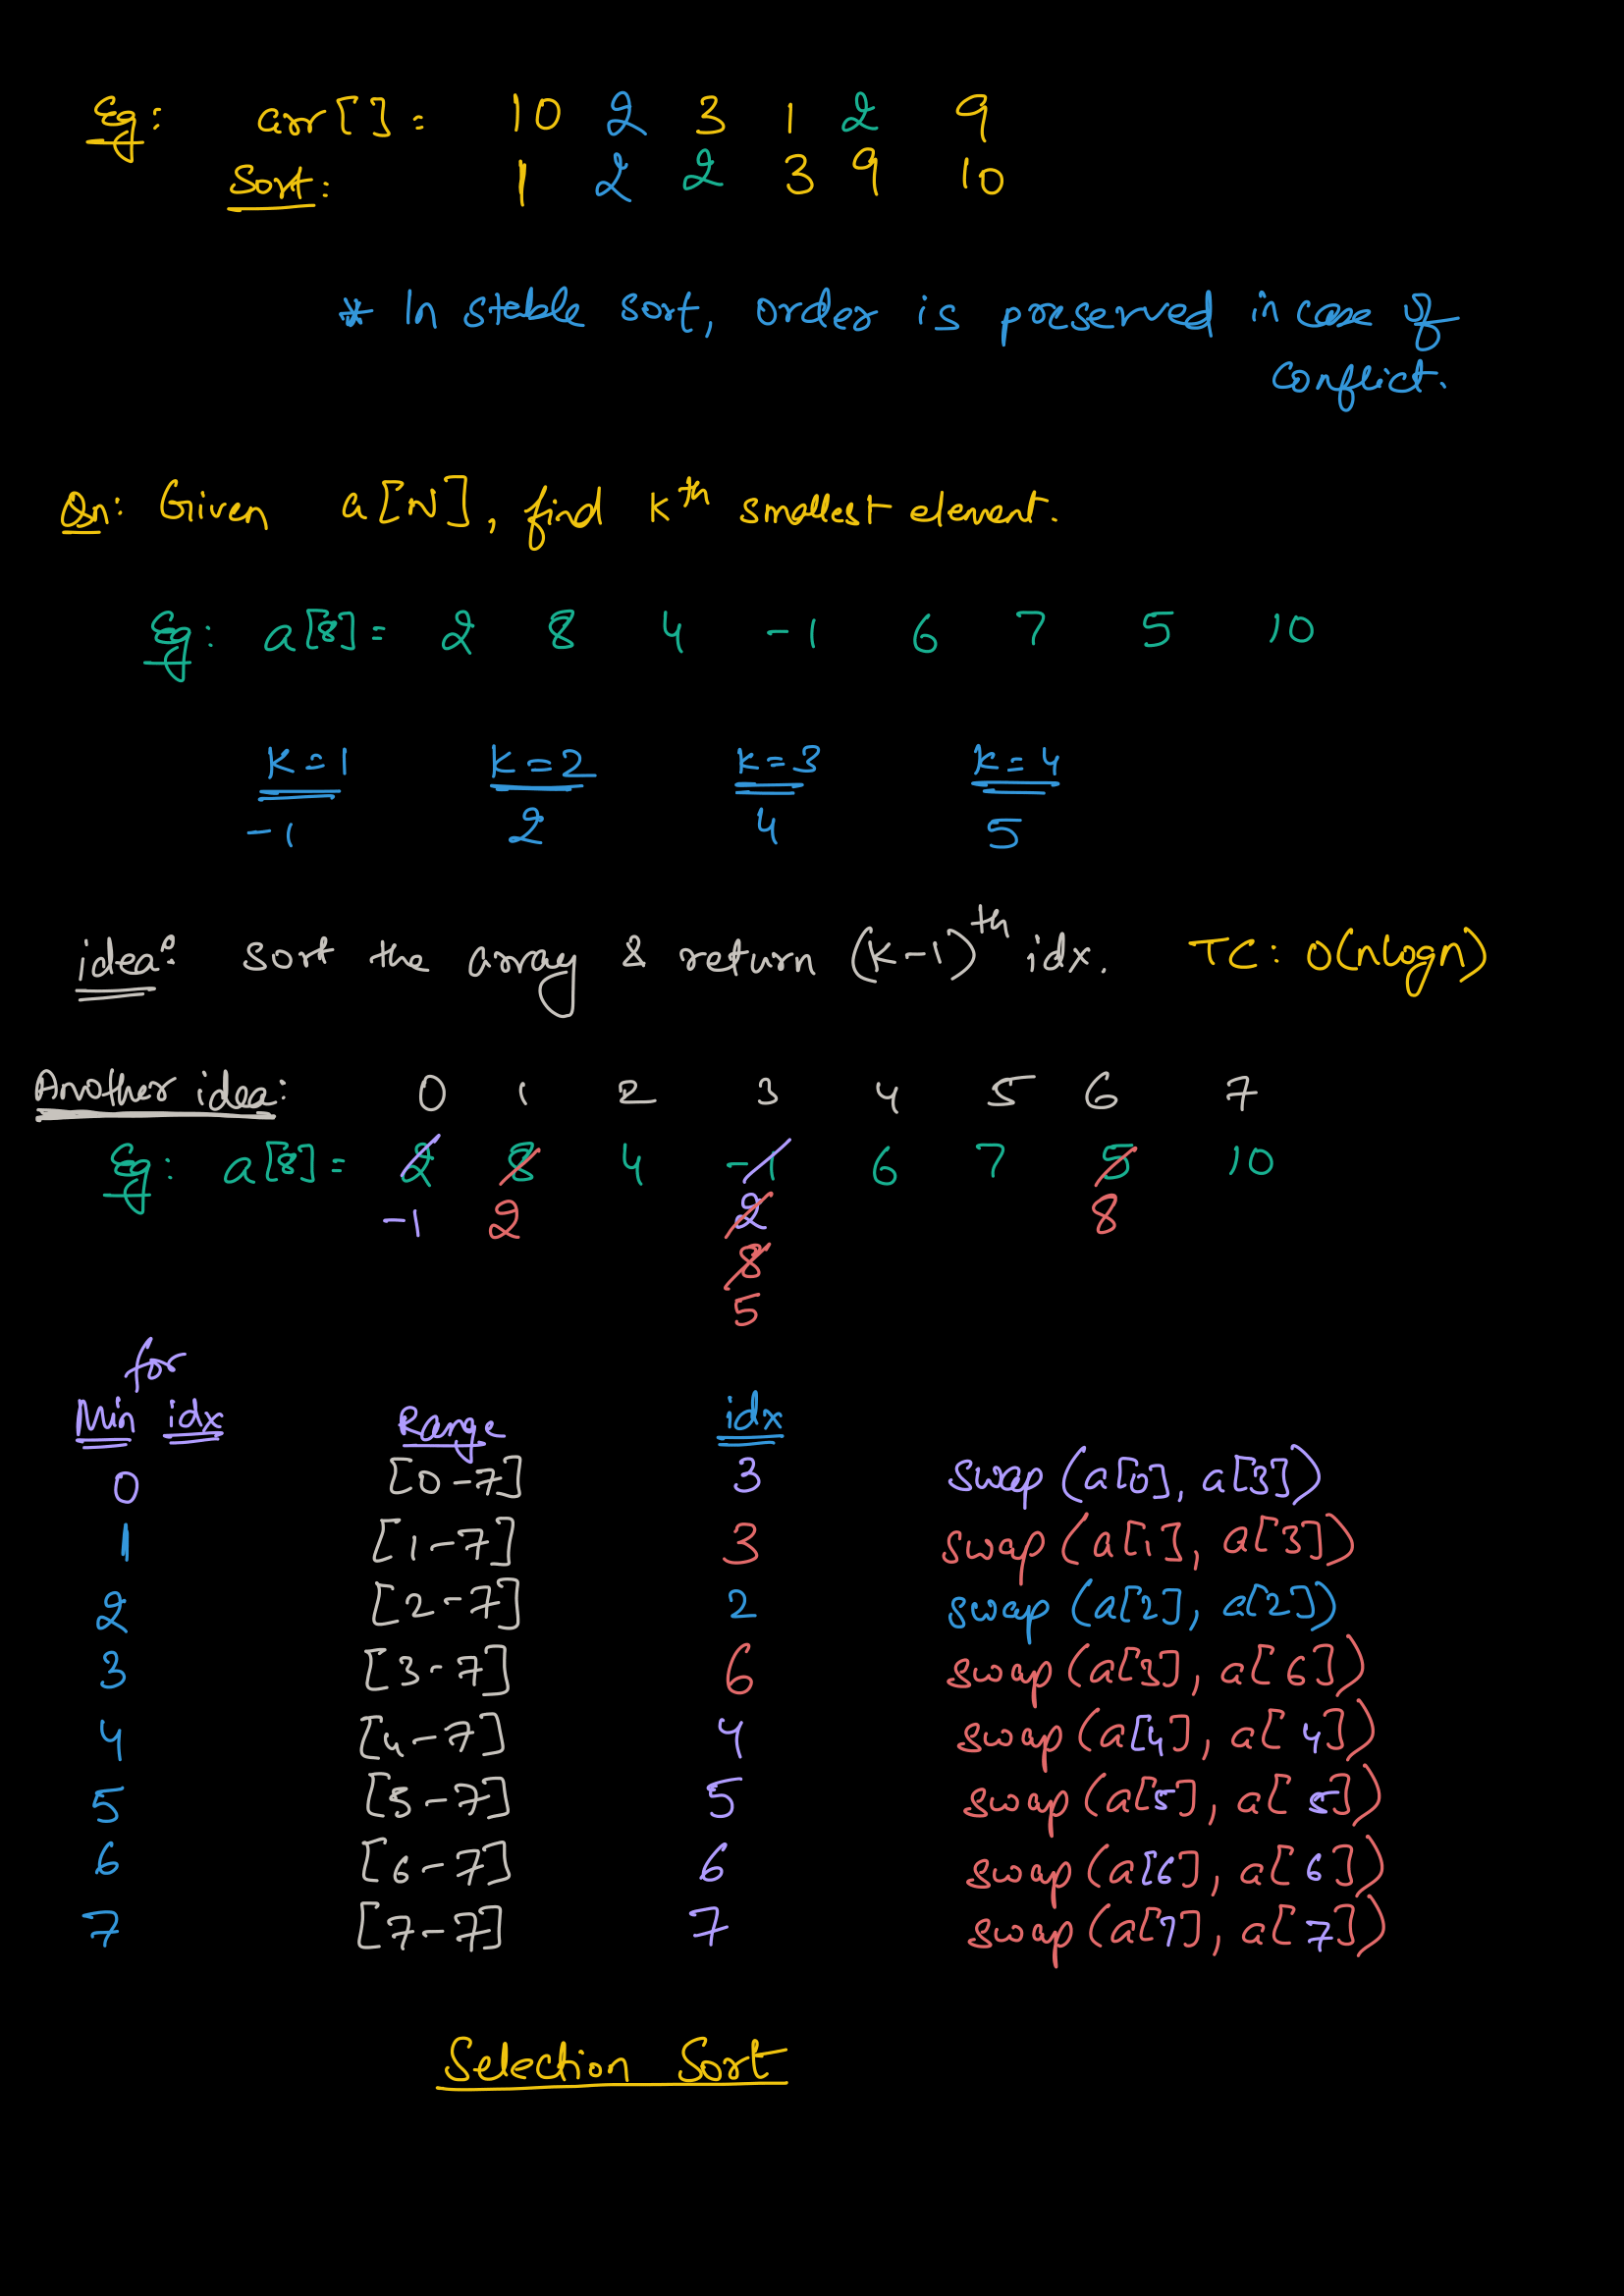 Eg: arr[] = 10 2 3 1 2 9
Sort: 1 2 2 3 9 10
* In stable sort, order is preserved in case of
conflict.
Qn: Given a[N], find kth smallest element.
Eg: a[8] = 2 8 4 -1 6 7 5 10
K=1 K=2 K=3 K=4
-1 2 4 5
idea: Sort the array & return (K-1)th idx. TC: O(nlogn)
Another idea: 0 1 2 3 4 5 6 7
Eg: a[8] = 2 8 4 -1 6 7 5 10
-1 2 2 8
8
5
for
Min idx Range idx
0 [0-7] 3 swap (a[0], a[3])
1 [1-7] 3 swap (a[1], a[3])
2 [2-7] 2 swap (a[2], a[2])
3 [3-7] 6 swap (a[3], a[6])
4 [4-7] 4 swap (a[4], a[4])
5 [5-7] 5 swap (a[5], a[5])
6 [6-7] 6 swap (a[6], a[6])
7 [7-7] 7 swap (a[7], a[7])
Selection Sort